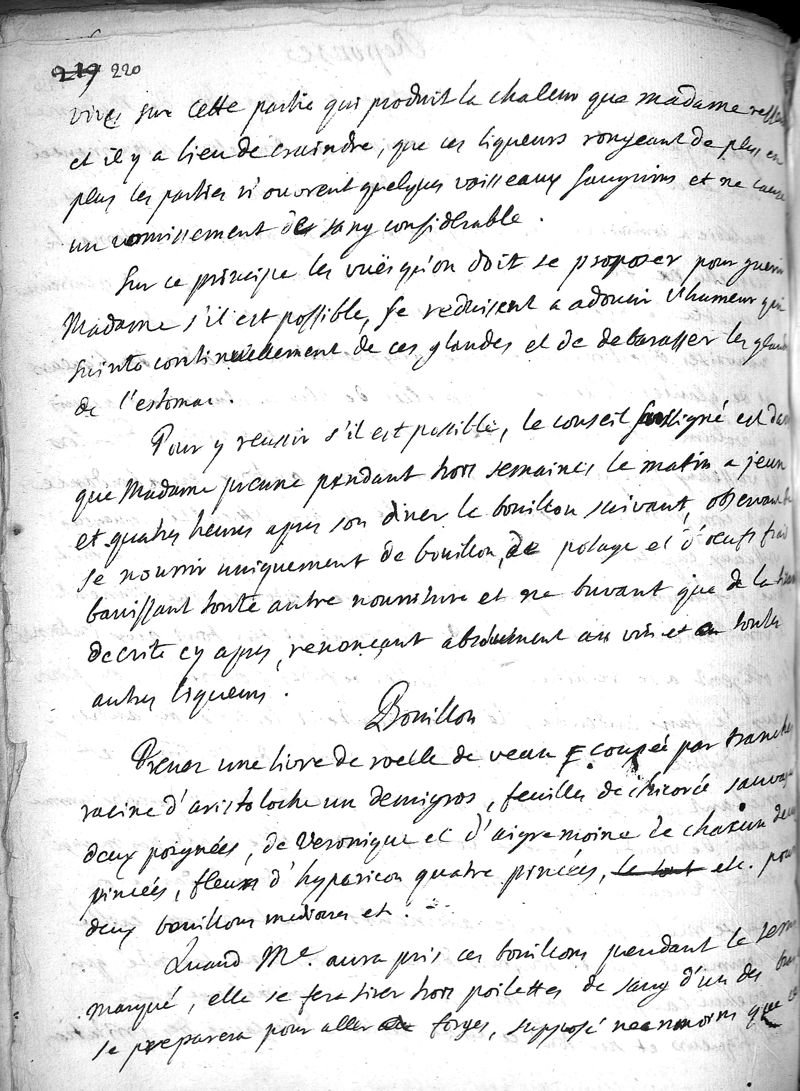 219 220
vives sur cette partie qui produit la chaleur que madame
et il y a lieu de craindre, que ces liqueurs rongeant de plus en
plus les parties n'ouvrent quelques vaisseaux sanguins et ne cause
un vomissement de sang considerable.
Sur ce principe les vuës qu'on doit se proposer pour guerir
Madame s'il est possible, se reduisent a adoucir l'humeur qui
suinte continuellement de ces glandes et de debarasser les glandes
de l'estomac.
Pour y reussir s'il est possible, le conseil soussigné est
que Madame prenne pendant trois semaines le matin a jeun
et quatres heures apres son diner le bouillon suivant, observant
se nourrir uniquement de bouillon, de potage et d'oeufs frais
banissant toute autre nourriture et ne buvant que de la
decrite cy apres, renonçant absolument au vin et a toutes
autres liqueurs.
Bouillon
Prenez une livre de roelle de veau coupée par tranches
racine d'aristoloche un demigros, feuilles de chicorée sauvage
deux poignées, de Veronique et d'aigremoine de chacun deux
pincées, fleurs d'hypericon quatre pincées, le tout etc. pour
deux bouillons mediocres etc.
Quand Me. aura pris ces bouillons pendant le tems
marqué, elle se fera tirer trois poilettes de sang d'un des bras
se preparera pour aller a forges, supposé neanmoins que